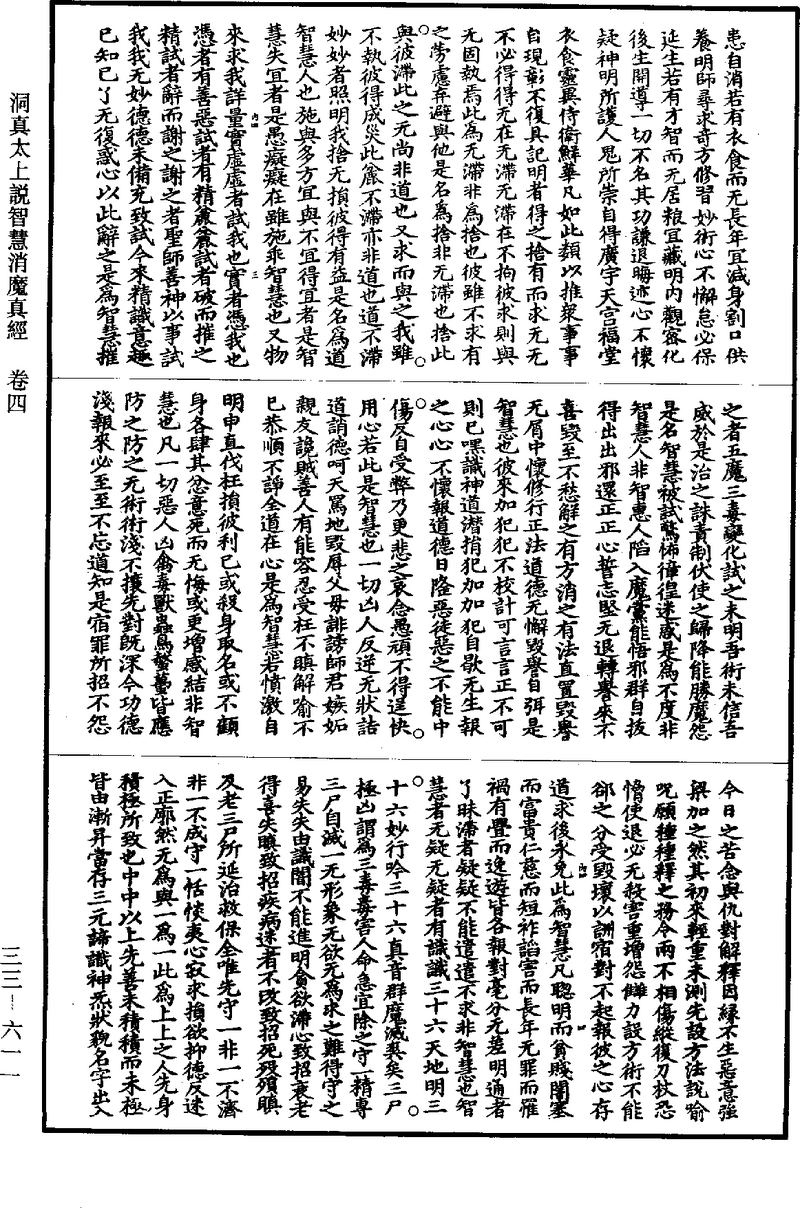 洞真太上説智慧消魔真經　卷四
三三—六一一
患自消若有衣食而无長年宜減身割口供
養明師尋求奇方修習妙術心不懈怠必保
延生若有才智而无居粮宜藏明内觀密化
後生開導一切不名其功謙退晦迹心不懷
疑神明所護人鬼所崇自得廣宇天宫福堂
衣食靈異侍衛鮮華凡如此類以推衆事事
自現彰不復具記明者得之捨有而求无无
不必得得无在无滯无滯在不拘彼求則與
无固執焉此為无滯非為捨也彼雖不求有
之勞慮弃避與他是名為捨非无滯也捨此
與彼滯此之无尚非道也又求而與之我雖
不執彼得成災此麄不滯亦非道也道不滯
妙妙者照明我捨无損彼得有益是名為道
智慧人也施與多方宜與不宜得宜者是智
慧失宜者是愚癡癡在雖施乖智慧也又物
來求我詳量實虚虚者試我也實者憑我也
憑者有善惡試者有精麄麄試者破而摧之
精試者辭而謝之謝之者聖師善神以事試
我我无妙德德未備充致試今來精識意趣
已知已了无復惑心以此辭之是為智慧摧
之者五魔三毒變化試之未明吾術未信吾
威於是治之誅責制伏使之歸降能勝魔怨
是名智慧被試驚怖徨徨迷惑是為不度非
智慧人非智惠人陷入魔黨能悟邪群自拔
得出出邪還正正心誓志堅无退轉譽來不
喜毁至不愁解之有方消之有法直置毁譽
无屑中懷修行正法道德无懈毁譽自弭是
智慧也彼來加犯犯不校計可言言正不可
則已嘿識神道潛揹犯加加犯自歇无生報
之心心不懷報道德日隆惡徒惡之不能中
傷反自受弊乃更悲之哀念愚頑不得逞快
用心若此是智慧也一切凶人反逆无狀詁
道誚德呵天罵地毁辱父母誹謗師君嫉妬
親友諛賊善人有能容忍受枉不瞋解喻不
已恭順不諍全道在心是為智慧若憤激自
明申直伐枉損彼利己或殺身取名或不顧
身各肆其忿意死而无悔或更增感結非智
慧也凡一切惡人凶禽毒獸蟲鳥螫蠆皆應
防之防之无術術淺不攘先對既深今功德
淺報來必至至不忘道知是宿罪所招不怨
今日之苦念與仇對解釋因緣不生惡意強
梁加之然其初來輕重未測先設方法說喻
呪願種種釋之務令兩不相傷縱復刀杖恐
憎使退必无殺害重增怨讎力設方術不能
郤之分受毁壞以詶宿對不起報彼之心存
道求後永免此為智慧凡聰明而貧賤闇塞
而富貴仁慈而短祚謟害而長年无罪而罹
禍有舋而逸遊皆各報對毫分无差明通者
了昧滯者疑疑不能遣遣不求非智慧也智
慧者无疑无疑者有識識三十六天地明三
十六妙行吟三十六真音群魔滅矣三尸
極凶謂為三毒毒害人命急宜除之守一精專
三尸自滅一无形象无欲无為求之難得守之
易失失由識闇不能進明貪欲滯心致招衰老
得喜失瞋致招疾病迷者不改致招死殁殞瞋
及老三尸所延治救保全唯先守一非一不濟
非一不成守一恬惔夷心寂求損欲抑德反迷
入正廓然无為與一為一此為上上之人先身
積極所致也中中以上先善未積積而未極
皆由漸昇當存三元諦識神炁狀貌名字出入